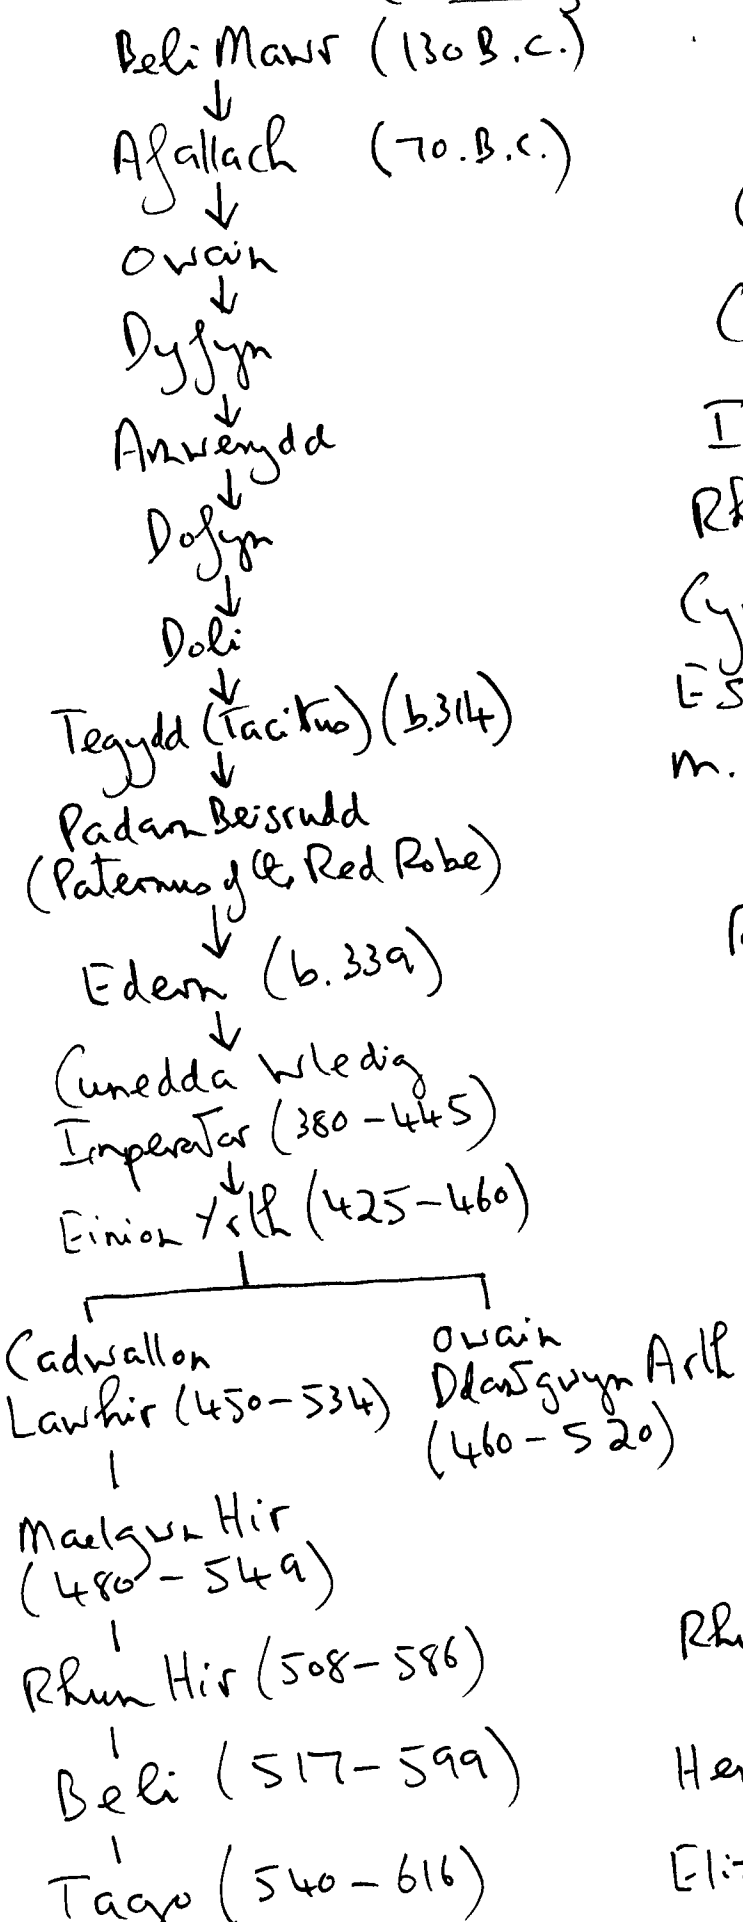 Beli Mawr (130 B.C.)
Afallach (70.B.C.)
Owain
Dyfyn
Anwerydd
Dofyn
Doli
Tegydd (Tacitus) (b.314)
Padarn Beisrudd
(Paternus of the Red Robe)
Edern (b.339)
Cunedda Wledig
Imperator (380-445)
Einion Yrth (425-460)
Cadwallon
Lawhir (450-534)
Owain
Ddantgwyn Arth
(460-520)
Maelgwn Hir
(480-549)
Rhun Hir (508-586)
Beli (517-599)
Tago (540-616)
C
I
Rh
Cy
Es
m.
Rhu
Her
Elit